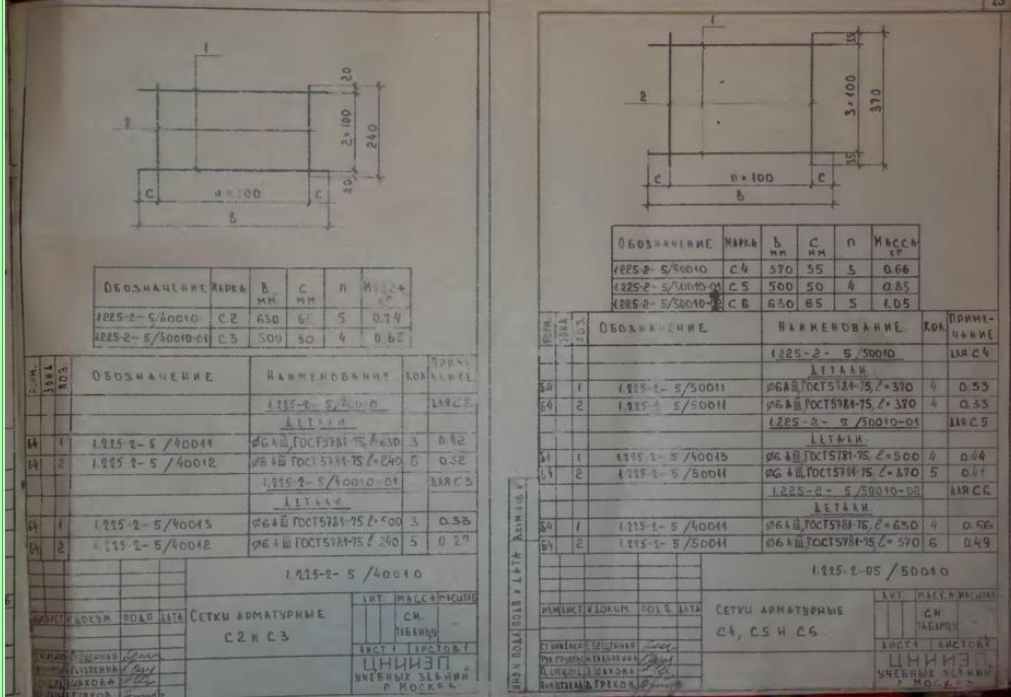 1
20
2×100
240
20
2
С
n×100
С
В
ОБОЗНАЧЕНИЕ МАРКА В мм С мм n МАССА кг
1.225-2-5/40010 С2 630 65 5 0.74
1.225-2-5/40010-01 С3 500 50 4
ФОРМ. ЗОНА ПОЗ. ОБОЗНАЧЕНИЕ НАИМЕНОВАНИЕ КОЛ ПРИМЕЧАНИЕ
1.225-2-5/40010 ДЛЯ С2
ДЕТАЛИ
БЧ 1 1.225-2-5/40011 Ø6АIII ГОСТ5781-75, ℓ=630 3 0.42
БЧ 2 1.225-2-5/40012 Ø6АIII ГОСТ5781-75, ℓ=240 6 0.32
1.225-2-5/40010-01 ДЛЯ С3
ДЕТАЛИ
БЧ 1 1.225-2-5/40013 Ø6АIII ГОСТ5781-75 ℓ=500 3 0.33
БЧ 2 1.225-2-5/40012 Ø6АIII ГОСТ5781-75 ℓ=240 5 0.27
1.225-2-5/40010
ЛИТ МАССА МАСШТАБ
СМ.
ТАБЛИЦУ
ИЗМ ЛИСТ N ДОКУМ. ПОДП ДАТА
СЕТКИ АРМАТУРНЫЕ
С2 И С3
ЛИСТ 1 ЛИСТОВ 1
ЦНИИЭП
УЧЕБНЫХ ЗДАНИЙ
Г МОСКВА
23
1
35
3×100
370
35
2
С
n×100
С
В
ОБОЗНАЧЕНИЕ МАРКА В мм С мм n МАССА кг
1.225-2-5/50010 С4 370 35 3 0.66
1.225-2-5/50010-01 С5 500 50 4 0.85
1.225-2-5/50010- С6 630 65 5 1.05
ФОРМ. ЗОНА ПОЗ. ОБОЗНАЧЕНИЕ НАИМЕНОВАНИЕ КОЛ ПРИМЕЧАНИЕ
1.225-2-5/50010 ДЛЯ С4
ДЕТАЛИ
БЧ 1 1.225-2-5/50011 Ø6АIII, ГОСТ5781-75, ℓ=370 4 0.33
БЧ 2 1.225-2-5/50011 Ø6АIII, ГОСТ5781-75, ℓ=370 4 0.33
1.225-2-5/50010-01 ДЛЯ С5
ДЕТАЛИ
БЧ 1 1.225-2-5/40013 Ø6АIII ГОСТ5781-75, ℓ=500 4 0.44
БЧ 2 1.225-2-5/50011 Ø6АIII ГОСТ5781-75, ℓ=370 5 0.41
1.225-2-5/50010-02 ДЛЯ С6
ДЕТАЛИ
БЧ 1 1.225-2-5/40011 Ø6АIII, ГОСТ5781-75, ℓ=630 4 0.56
БЧ 2 1.225-2-5/50011 Ø6АIII, ГОСТ5781-75, ℓ=370 6 0.49
1.225-2-05/50010
ЛИТ МАССА МАСШТАБ
СМ
ТАБЛИЦУ
ИЗМ ЛИСТ N ДОКУМ. ПОДП. ДАТА
СЕТКИ АРМАТУРНЫЕ
С4, С5 И С6
ЛИСТ 1 ЛИСТОВ 1
ЦНИИЭП
УЧЕБНЫХ ЗДАНИЙ
Г МОСКВА
ИНВ N ПОДЛ ПОДП И ДАТА ВЗАМ ИНВ N